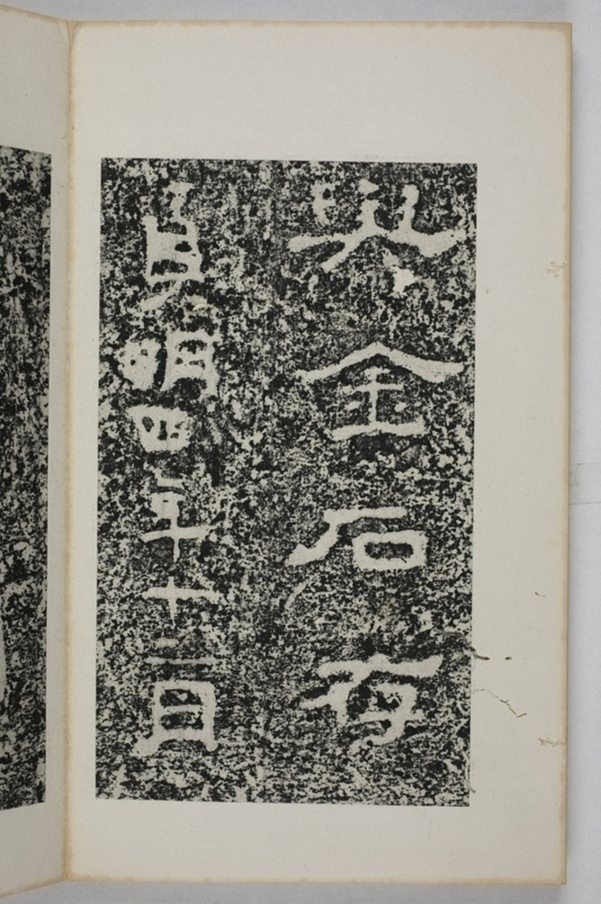 與金石存
貞明四年十二月